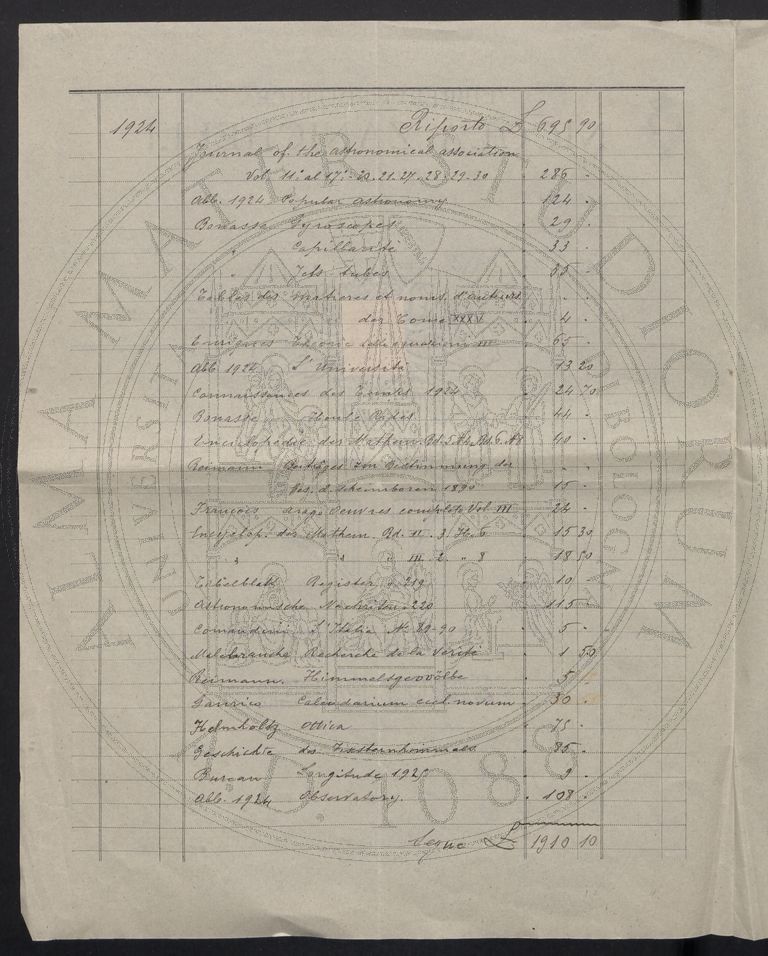 1924 Riporto £ 695 90
Journal of the astronomical association
Vol. 11° al 17° - 20. 21. 27. 28. 29. 30 286 -
Abb. 1924 Popular Astronomy 124 -
Bouasse Gyroscopes 29 -
" Capillarité 33 -
" Jets tubes 35 -
Tables des matieres et noms d'auteurs - -
des Tome XXXIV 4 -
Enriques Theorie delle equazioni III 65 -
Abb. 1924 L'Université 13 20
Connaissances des Temps 1924 24 70
Bouasse 44 -
Enciclopédie des Mathem. Bd. 40 -
Reimann Beiträge zur Bestimmung der - -
scheinbaren 1890 15 -
François Arago Oeuvres complete Vol. III 24 -
Encyclop. des Mathem. Bd. II. 3. H. 6 15 30
" " " III. 2. " 8 18 50
Register 219 10 -
Astronomische Nachrichten 220 115 -
Comandini L'Italia N. 89-90 5 -
Malebranche Recherche de la Vérité 1 50
Reimann Himmelsgewölbe 5 -
Gaurico Calendarium eccl. novum 30 -
Helmholtz Ottica 75 -
Geschichte des Fixsternhimmels 85 -
Bureau Longitude 1925 9 -
Abb. 1924 Observatory. 108 -
Segue £ 1910 10
ALMA MATER STUDIORUM
UNIVERSITA DI BOLOGNA
A.D. 1088